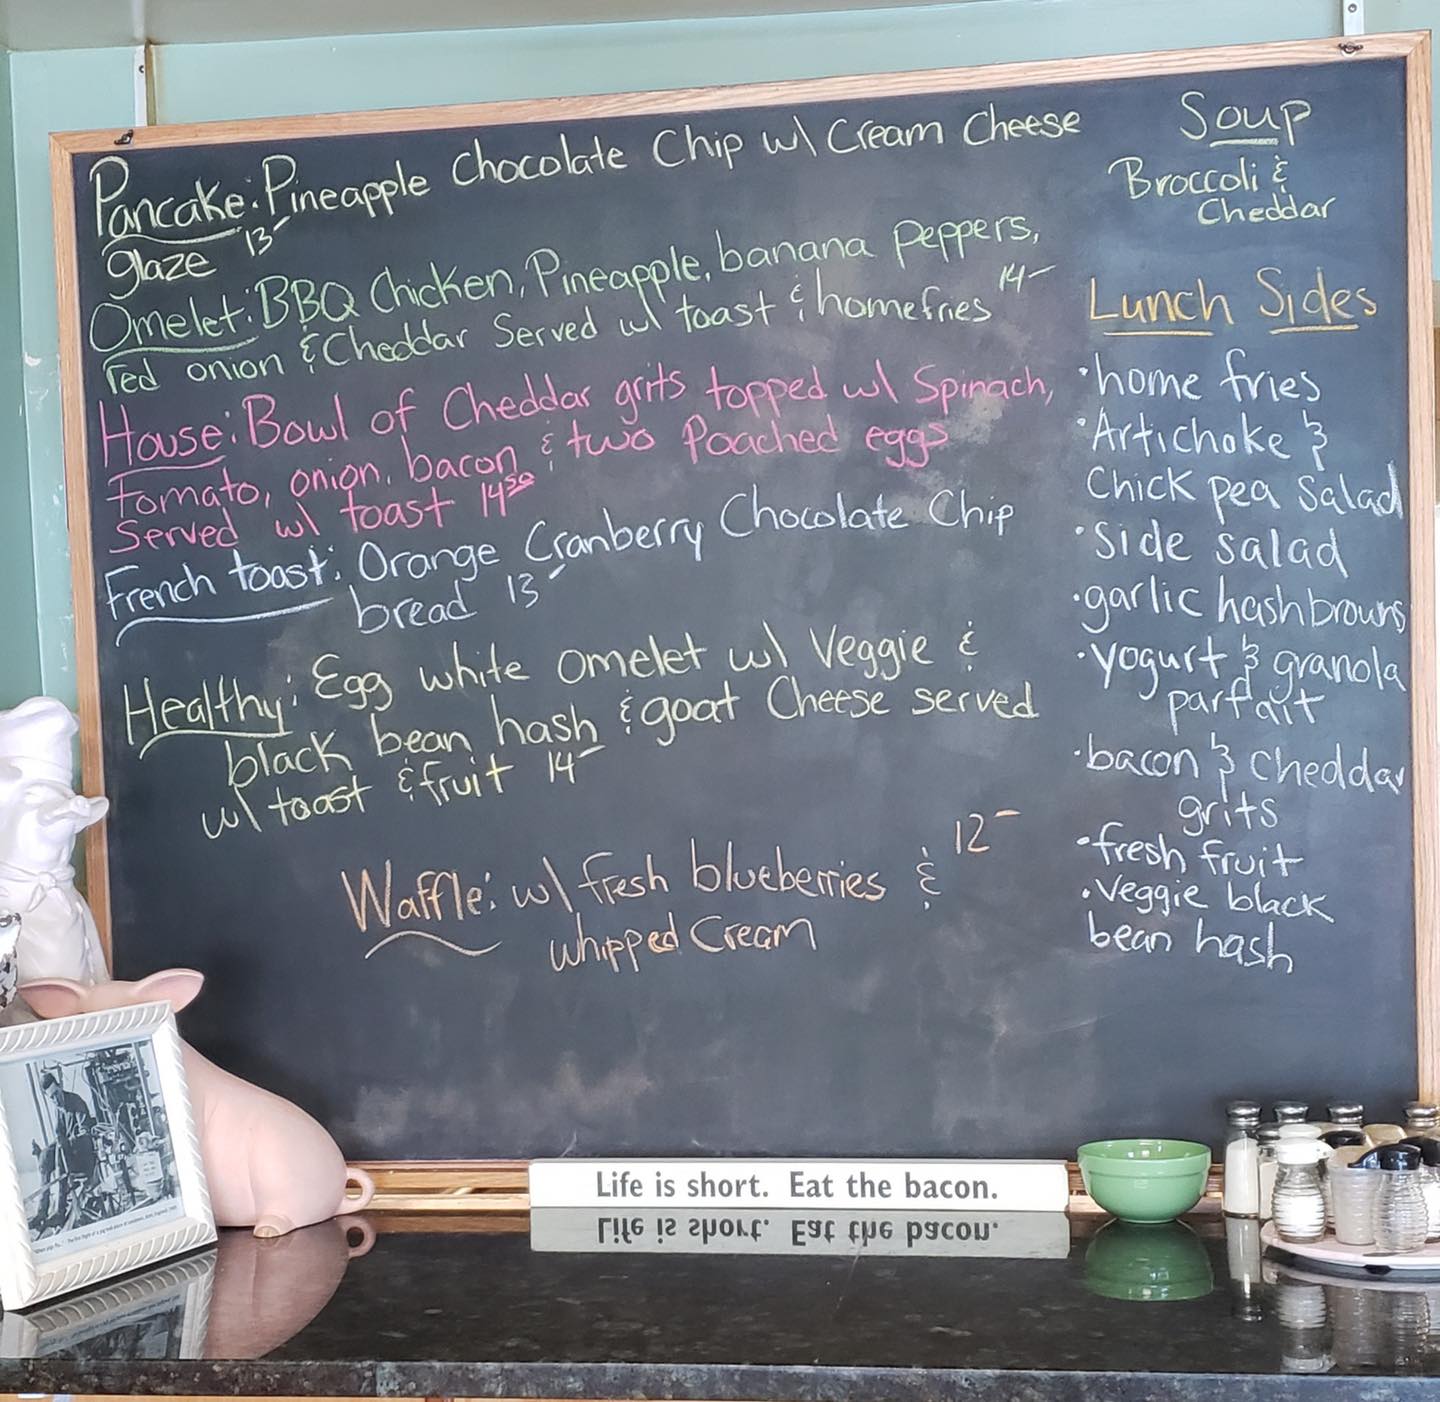 Pancake: Pineapple Chocolate Chip w/ Cream Cheese
glaze 13-
Omelet: BBQ Chicken, Pineapple, banana peppers,
red onion & Cheddar Served w/ toast & homefries 14-
House: Bowl of Cheddar grits topped w/ Spinach,
tomato, onion, bacon & two Poached eggs
Served w/ toast 14.50
French toast: Orange Cranberry Chocolate Chip
bread 13-
Healthy: Egg white omelet w/ Veggie &
black bean hash & goat Cheese served
w/ toast & fruit 14-
Waffle: w/ fresh blueberries & 12-
whipped Cream
Soup
Broccoli &
Cheddar
Lunch Sides
• home fries
• Artichoke &
Chick pea Salad
• Side salad
• garlic hashbrowns
• yogurt & granola
parfait
• bacon & cheddar
grits
• fresh fruit
• Veggie black
bean hash
Life is short. Eat the bacon.